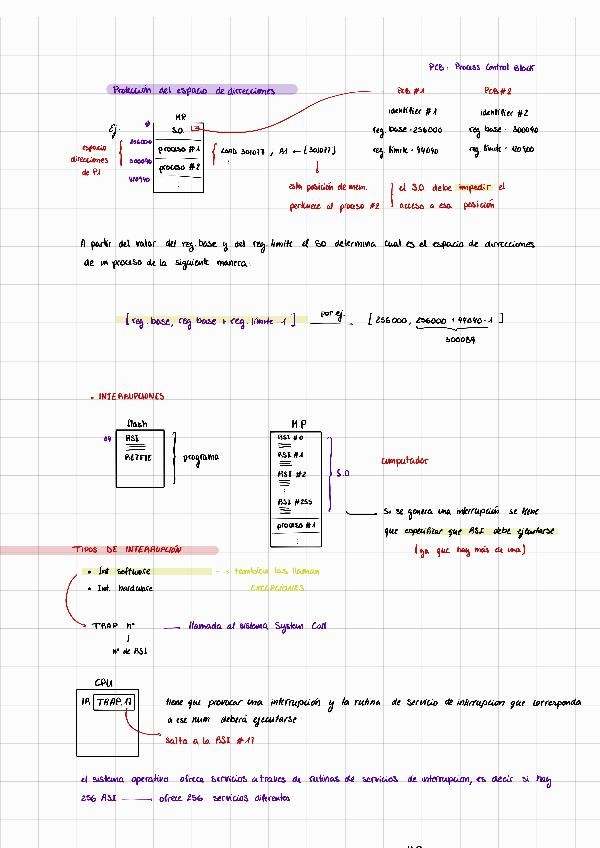 PCB: Process Control Block
Protección del espacio de direcciones
PCB #1
PCB #2
identifier #1
identifier #2
reg. base = 256000
reg. base = 300040
reg. limite = 44040
reg. limite = 120900
Ej:
MP
0
S.O.
256000
proceso #1
300040
proceso #2
420940
espacio
direcciones
de P1
LOAD 301077, R1 ← [301077]
esta posición de mem.
pertenece al proceso #2
el S.O debe impedir el
acceso a esa posición
A partir del valor del reg. base y del reg. limite el SO determina cual es el espacio de direcciones
de un proceso de la siguiente manera:
[reg. base, reg base + reg. limite - 1]
por ej.
[256000, 256000 + 44040 - 1]
300039
• INTERRUPCIONES
flash
RSI
RETFIE
programa
MP
RSI #0
RSI #1
RSI #2
RSI #255
proceso #1
S.O
computador
Si se genera una interrupción se tiene
que especificar que RSI debe ejecutarse
(ya que hay más de una)
TIPOS DE INTERRUPCIÓN
• Int software
--> también las llaman
EXCEPCIONES
• Int. hardware
TRAP nº
llamada al sistema System Call
nº de RSI
CPU
IR TRAP 17
tiene que provocar una interrupción y la rutina de servicio de interrupcion que corresponda
a ese num deberá ejecutarse
salta a la RSI #17
el sistema operativo ofrece servicios a traves de rutinas de servicios de interrupcion, es decir si hay
256 RSI —— ofrece 256 servicios diferentes